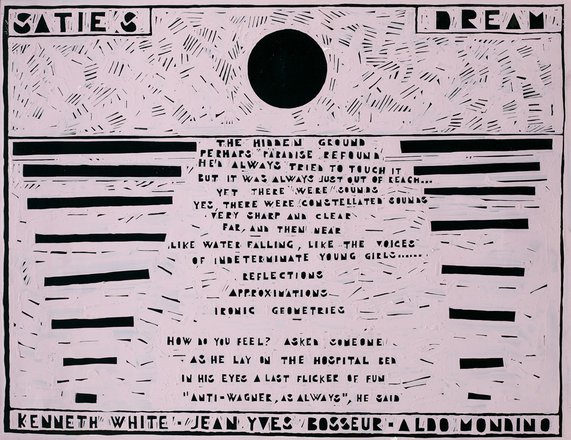 SATIE'S DREAM
THE HIDDEN GROUND
PERHAPS PARADISE REFOUND
HE'D ALWAYS TRIED TO TOUCH IT
BUT IT WAS ALWAYS JUST OUT OF REACH...
YET THERE WERE SOUNDS
YES, THERE WERE CONSTELLATED SOUNDS
VERY SHARP AND CLEAR
FAR, AND THEN NEAR
LIKE WATER FALLING, LIKE THE VOICES
OF INDETERMINATE YOUNG GIRLS......
REFLECTIONS
APPROXIMATIONS
IRONIC GEOMETRIES
HOW DO YOU FEEL? ASKED SOMEONE
AS HE LAY ON THE HOSPITAL BED
IN HIS EYES A LAST FLICKER OF FUN
"ANTI-WAGNER, AS ALWAYS", HE SAID
KENNETH WHITE - JEAN YVES BOSSEUR - ALDO MONDINO